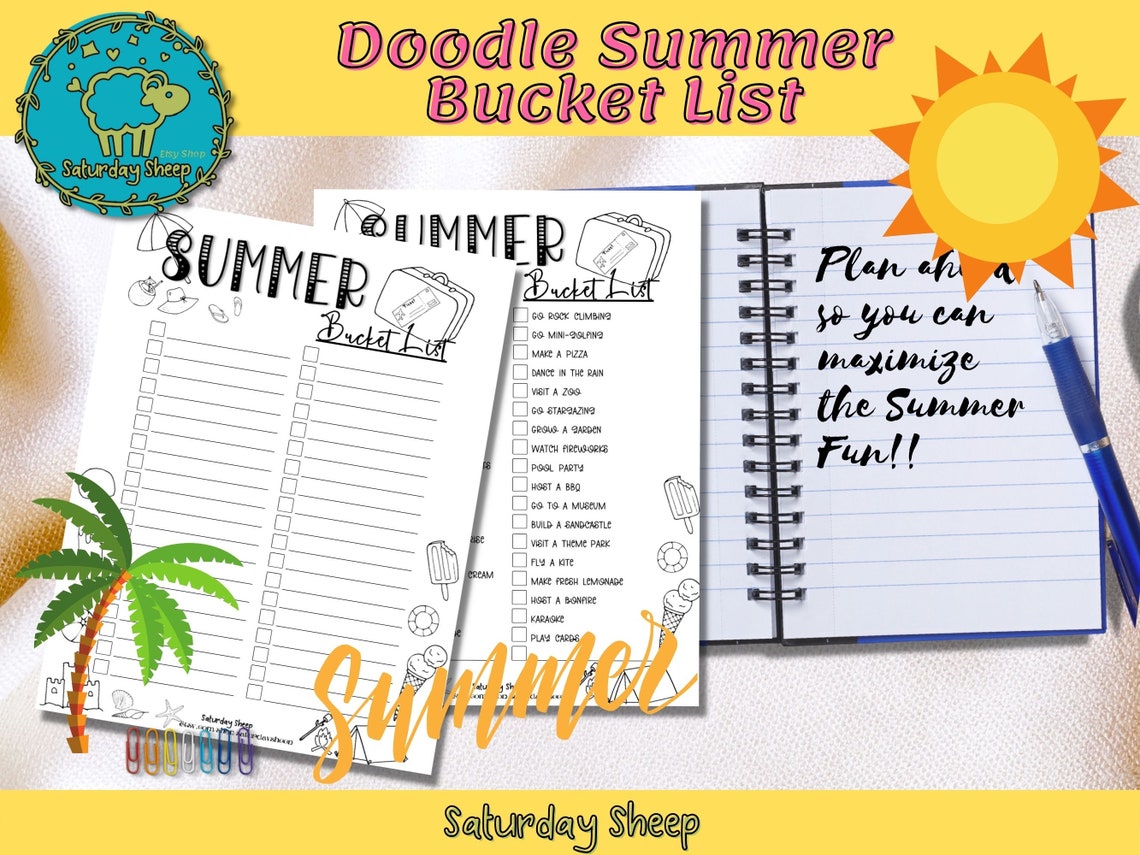 Doodle Summer
Bucket List
Etsy Shop
Saturday Sheep
SUMMER
Bucket List
Saturday Sheep
SUMMER
Ticket
Bucket List
GO ROCK CLIMBING
GO MINI-GOLFING
MAKE A PIZZA
DANCE IN THE RAIN
VISIT A ZOO
GO STARGAZING
GROW A GARDEN
WATCH FIREWORKS
POOL PARTY
HOST A BBQ
GO TO A MUSEUM
BUILD A SANDCASTLE
VISIT A THEME PARK
FLY A KITE
MAKE FRESH LEMONADE
CREAM
HOST A BONFIRE
KARAOKE
PLAY CARDS
Summer
Plan ahead
so you can
maximize
the Summer
Fun!!
Saturday Sheep